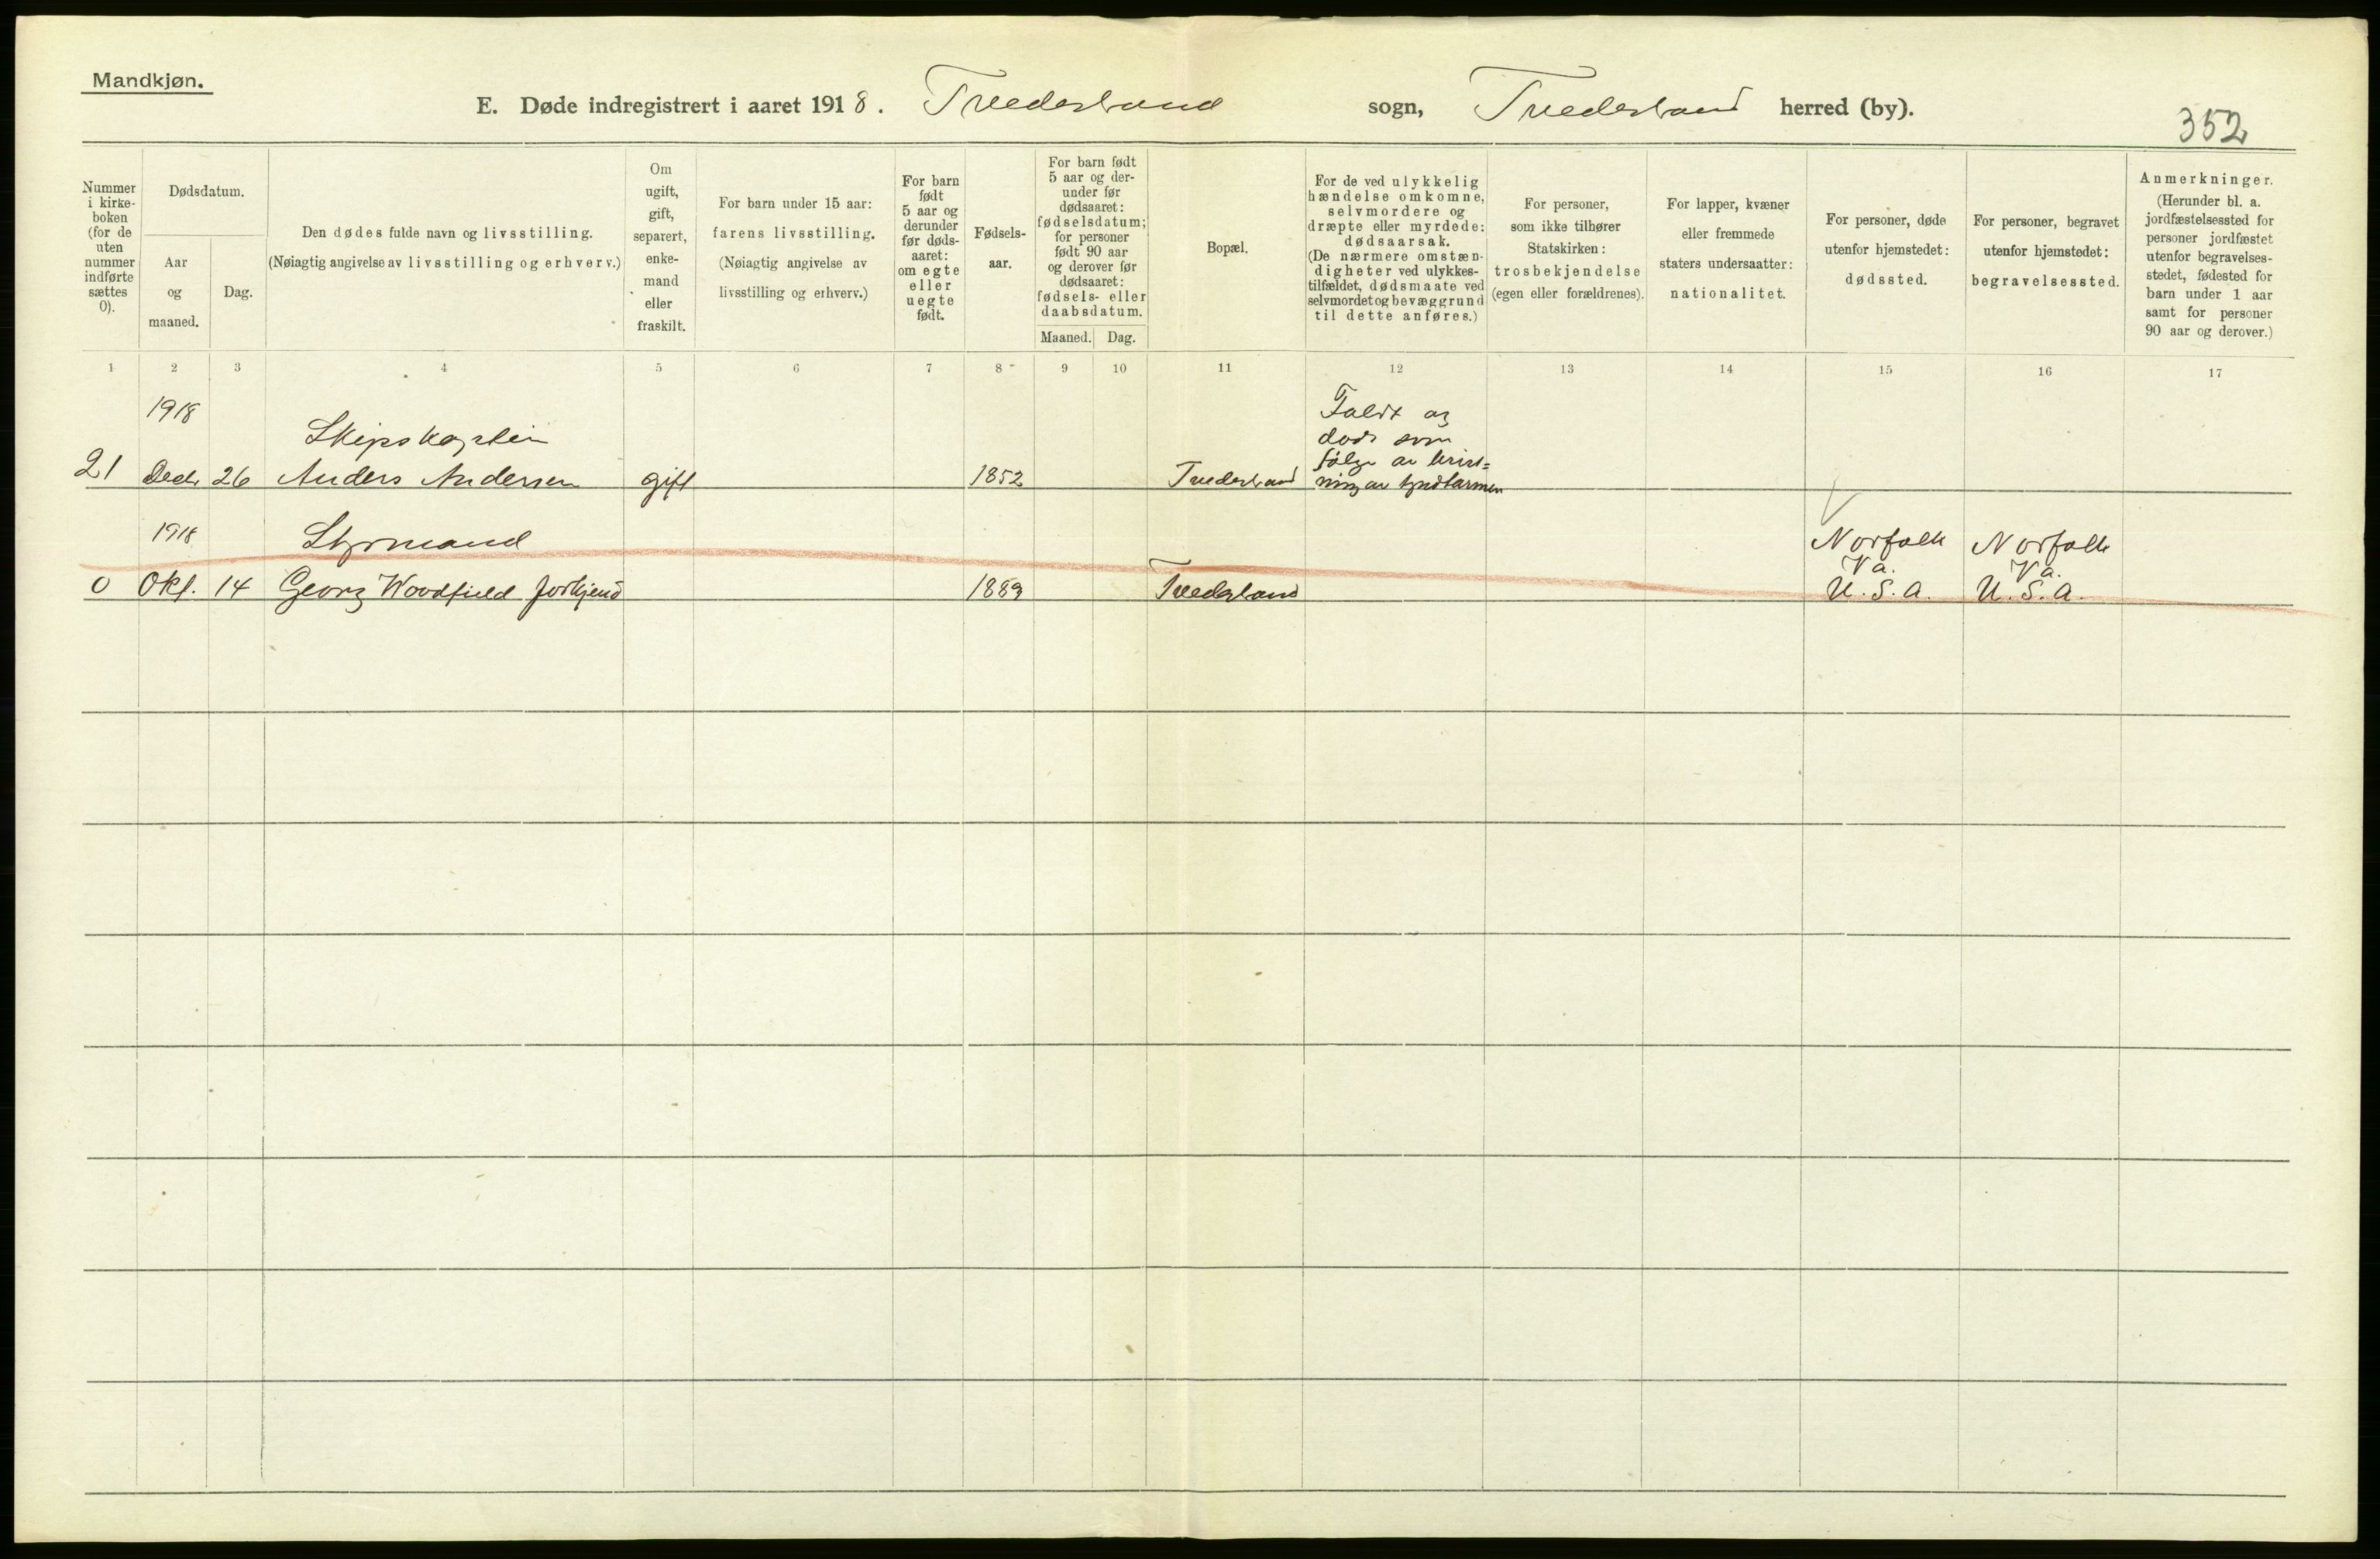 Mandkjøn.
E. Døde indregistrert i aaret 1918. Tvedestrand sogn, Tvedestrand herred (by).
352
Nummer i kirke-boken (for de uten nummer indførte sættes 0).
Dødsdatum.
Aar og maaned.
Dag.
Den dødes fulde navn og livsstilling.
(Nøiagtig angivelse av livsstilling og erhverv.)
Om ugift, gift, separert, enke-mand eller fraskilt.
For barn under 15 aar:
farens livsstilling.
(Nøiagtig angivelse av livsstilling og erhverv.)
For barn født 5 aar og derunder før døds-aaret: om egte eller uegte født.
Fødsels-aar.
For barn født 5 aar og der-under før dødsaaret: fødselsdatum; for personer født 90 aar og derover før dødsaaret: fødsels- eller daabsdatum.
Maaned.
Dag.
Bopæl.
For de ved ulykkelig hændelse omkomne, selvmordere og dræpte eller myrdede: dødsaarsak.
(De nærmere omstæn-digheter ved ulykkes-tilfældet, dødsmaate ved selvmordet og bevæggrund til dette anføres.)
For personer, som ikke tilhører Statskirken: trosbekjendelse (egen eller forældrenes).
For lapper, kvæner eller fremmede staters undersaatter: nationalitet.
For personer, døde utenfor hjemstedet: dødssted.
For personer, begravet utenfor hjemstedet: begravelsessted.
Anmerkninger.
(Herunder bl. a. jordfæstelsessted for personer jordfæstet utenfor begravelses-stedet, fødested for barn under 1 aar samt for personer 90 aar og derover.)
1 2 3 4 5 6 7 8 9 10 11 12 13 14 15 16 17
1918
Skipskaptein
Faldt og
døde som
følge av brist=
21 Decbr 26 Anders Andersen gift 1852 Tvedestrand ning av tyndtarmen
1918
Styrmand
Norfolk Norfolk
Va. Va.
0 Okt. 14 Georg Woodfield 1889 Tvedestrand U.S.A. U.S.A.